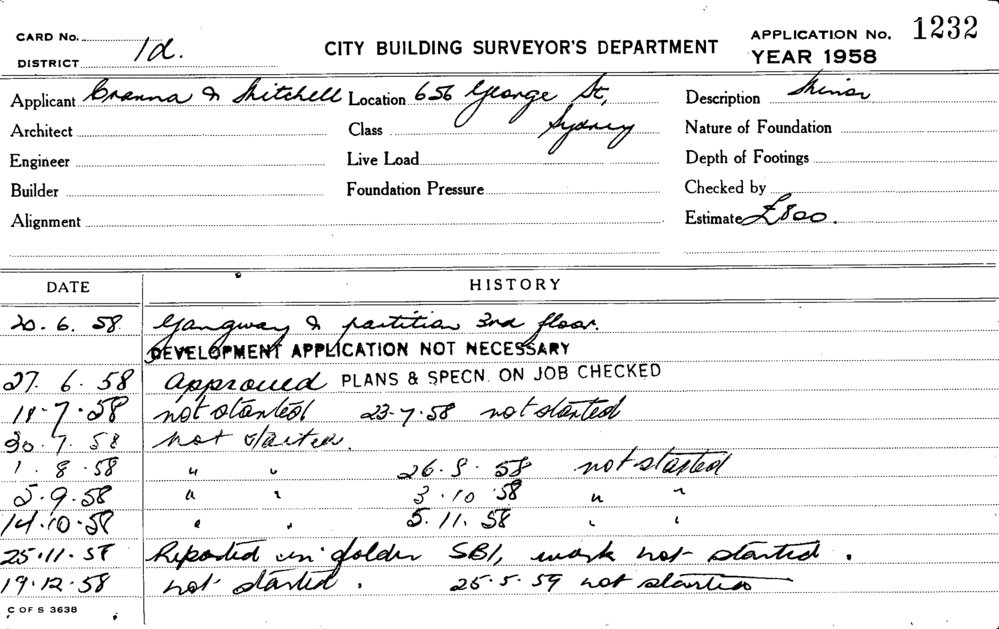 CARD No. APPLICATION No. 1232
DISTRICT 1d. CITY BUILDING SURVEYOR'S DEPARTMENT YEAR 1958
Applicant Cranna & Mitchell Location 656 George St, Description Minor
Architect Class Sydney Nature of Foundation
Engineer Live Load Depth of Footings
Builder Foundation Pressure Checked by
Alignment Estimate £800.
DATE HISTORY
20. 6. 58 Gangway & partition 3rd floor.
DEVELOPMENT APPLICATION NOT NECESSARY
27. 6. 58 Approved PLANS & SPECN. ON JOB CHECKED
11.7.58 not started 23.7.58 not started
30.7.58 not started.
1. 8. 58 " " 26.8.58 not started
5.9.58 " " 3.10.58 " "
14.10.58 " " 5.11.58 " "
25.11.58 Reported in folder SBI, work not started.
19.12.58 not started. 25.5.59 not started
C OF S 3638